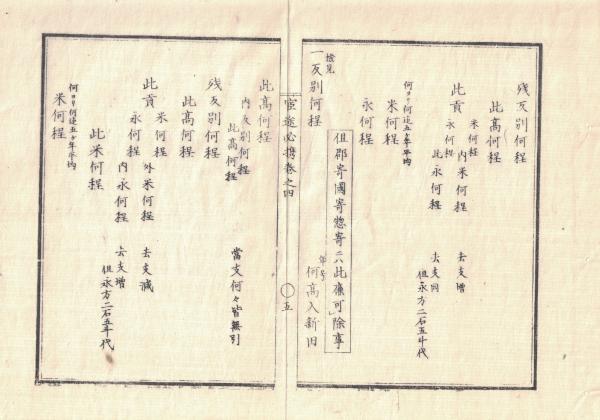 残反別何程
此高何程
米何程
内米何程 去支増
此貢
永何程 去支同
此永何程 但永方二石五斗代
何ヨリ何迄五ケ年平均
米何程
永何程
但郡寄國寄惣寄ニハ此廉可除事
検見 年号
一反別何程 何高入新旧
官途必携巻之四 五
此高何程
内反別何程 當支何々皆無引
此高何程
残反別何程
此高何程
米何程 外米何程 去支減
此貢
永何程 内永何程 去支増
此米何程 但永方二石五斗代
何ヨリ何迄五ケ年平均
米何程